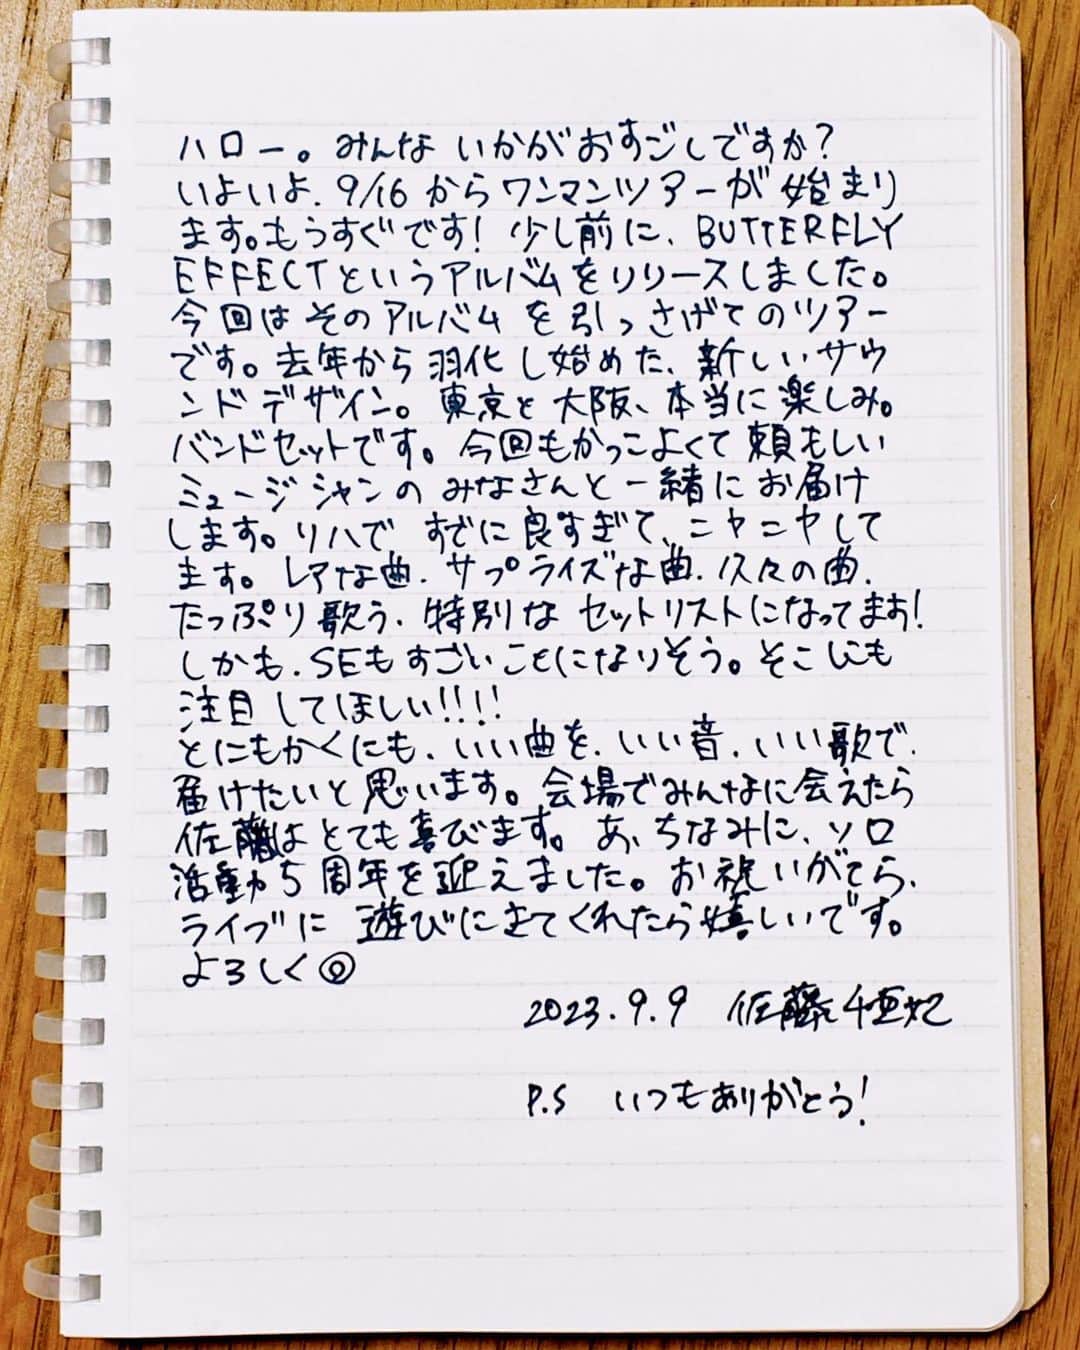 ハロー。みんな いかがおすごしですか?
いよいよ、9/16 からワンマンツアーが始まり
ます。もうすぐです! 少し前に、BUTTERFLY
EFFECTというアルバムをリリースしました。
今回はそのアルバムを引っさげてのツアー
です。去年から羽化し始めた、新しいサウ
ンドデザイン。東京と大阪、本当に楽しみ。
バンドセットです。今回もかっこよくて頼もしい
ミュージシャンのみなさんと一緒にお届け
します。リハですでに良すぎて、ニヤニヤして
ます。レアな曲、サプライズな曲、久々の曲、
たっぷり歌う、特別なセットリストになってます!
しかも、SEもすごいことになりそう。そこにも
注目してほしい!!!!
とにもかくにも、いい曲を、いい音、いい歌で、
届けたいと思います。会場でみんなに会えたら
佐藤はとても喜びます。あ、ちなみに、ソロ
活動5周年を迎えました。お祝いがてら、
ライブに 遊びにきてくれたら嬉しいです。
よろしく◎
2023.9.9 佐藤千亜妃
P.S いつもありがとう!